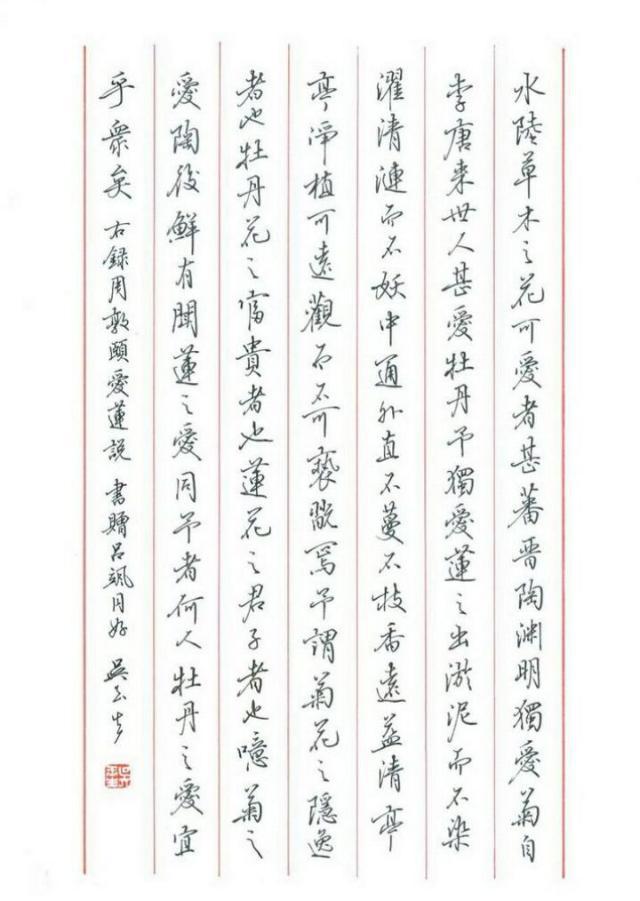 水陸草木之花可愛者甚蕃晉陶淵明獨愛菊自
李唐来世人甚愛牡丹予獨愛蓮之出淤泥而不染
濯清漣而不妖中通外直不蔓不枝香遠益清亭
亭淨植可遠觀而不可褻翫焉予謂菊花之隱逸
者也牡丹花之富貴者也蓮花之君子者也噫菊之
愛陶後鮮有聞蓮之愛同予者何人牡丹之愛宜
乎衆矣 右録周敦頤愛蓮說 書贈呂颯同好 吳玉生